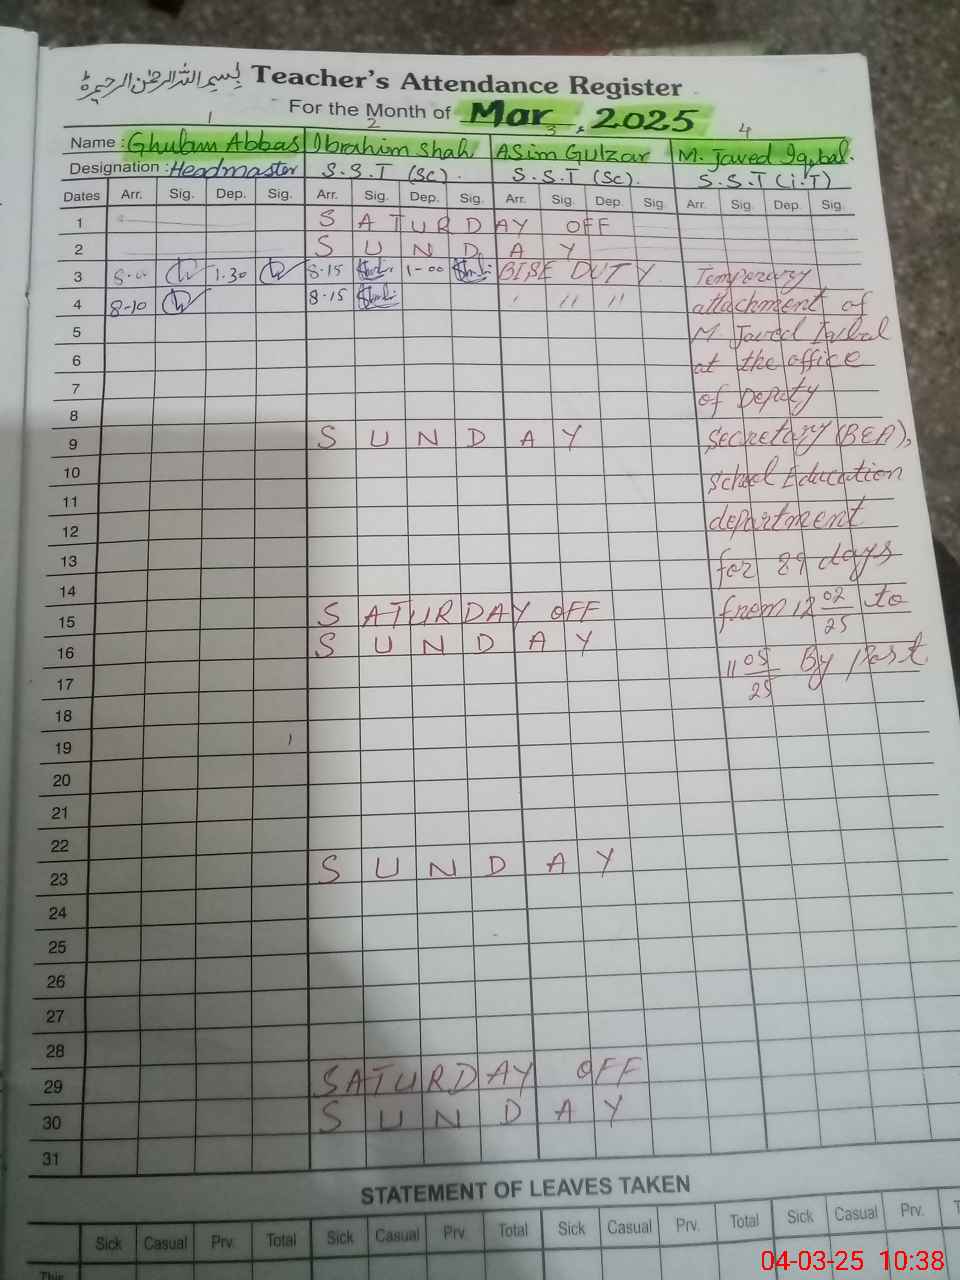 بسم اللہ الرحمٰن الرحیم Teacher's Attendance Register
For the Month of Mar , 2025
1 2 3 4
Name : Ghulam Abbas Ibrahim Shah ASim Gulzar M. Javed Iqbal.
Designation : Headmaster S.S.T (Sc). S.S.T (Sc). S.S.T (i.T)
Dates Arr. Sig. Dep. Sig. Arr. Sig. Dep. Sig. Arr. Sig. Dep. Sig. Arr. Sig. Dep. Sig.
1 SATURDAY OFF
2 SUNDAY
3 8.00 1.30 8.15 1-00 BISE DUTY Temperary
4 8-10 8-15 " " " attachment of
5 M. Javed Iqbal
6 at the office
7 of Deputy
8
9 SUNDAY Secretary (BEA),
10 School Education
11
12 department
13 for 89 days
14
15 SATURDAY OFF from 12 02/25 to
16 SUNDAY
17 11 05/25 By Post
18
19
20
21
22
23 SUNDAY
24
25
26
27
28
29 SATURDAY OFF
30 SUNDAY
31
STATEMENT OF LEAVES TAKEN
Sick Casual Prv. Total Sick Casual Prv. Total Sick Casual Prv. Total Sick Casual Prv.
This
04-03-25 10:38